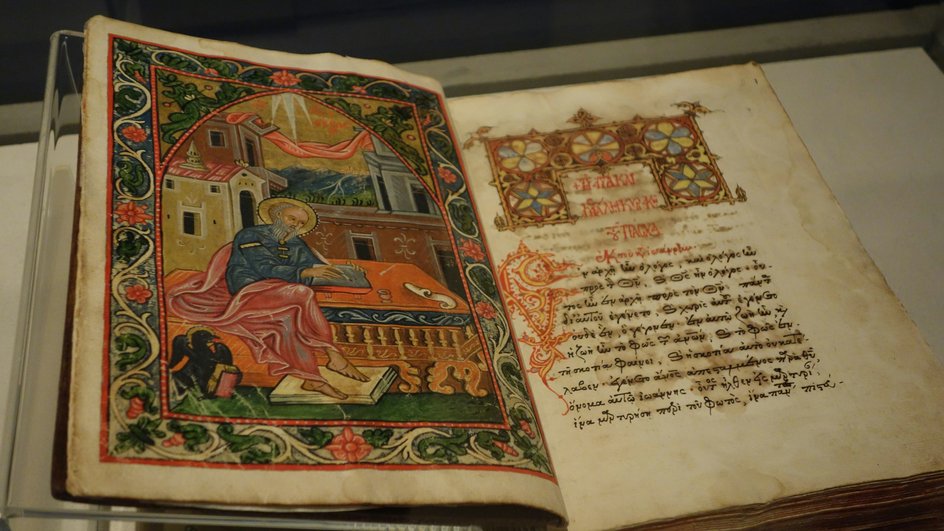 ΠΑΣΧΑ
ν ἀρχῇ ἦν ὁ λόγος· καὶ ὁ λόγος ἦν
πρὸς τὸν Θν· καὶ Θς ἦν ὁ λόγος· οὗ
τος ἦν ἐν ἀρχῇ πρὸς τὸν Θν· πάντ
δι' αὐτοῦ ἐγένετο· καὶ χωρὶς αὐτοῦ ἐγένετο
οὐδὲ ἓν ὃ γέγονεν· ἐν αὐτῷ ζωὴ ἦν· κ
ἡ ζωὴ ἦν τὸ φῶς τῶν ἀνων· καὶ τὸ φῶς ἐν
τῇ σκοτίᾳ φαίνει· καὶ ἡ σκοτία αὐτὸ οὐ κατέ
λαβεν· ἐγένετο ἄνος ἀπεσταλμένος παρὰ Θυ
ὄνομα αὐτῷ Ἰωάννης· οὗτος ἦλθεν εἰς μαρτυρί
ἵνα μαρτυρήσῃ περὶ τοῦ φωτός, ἵνα πάντ πιστεύ